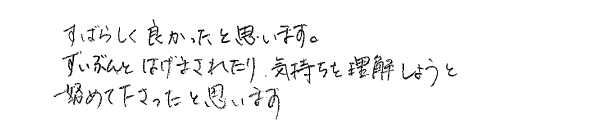 すばらしく良かったと思います。
ずいぶんとはげまされたり、気持ちを理解しようと
努めて下さったと思います